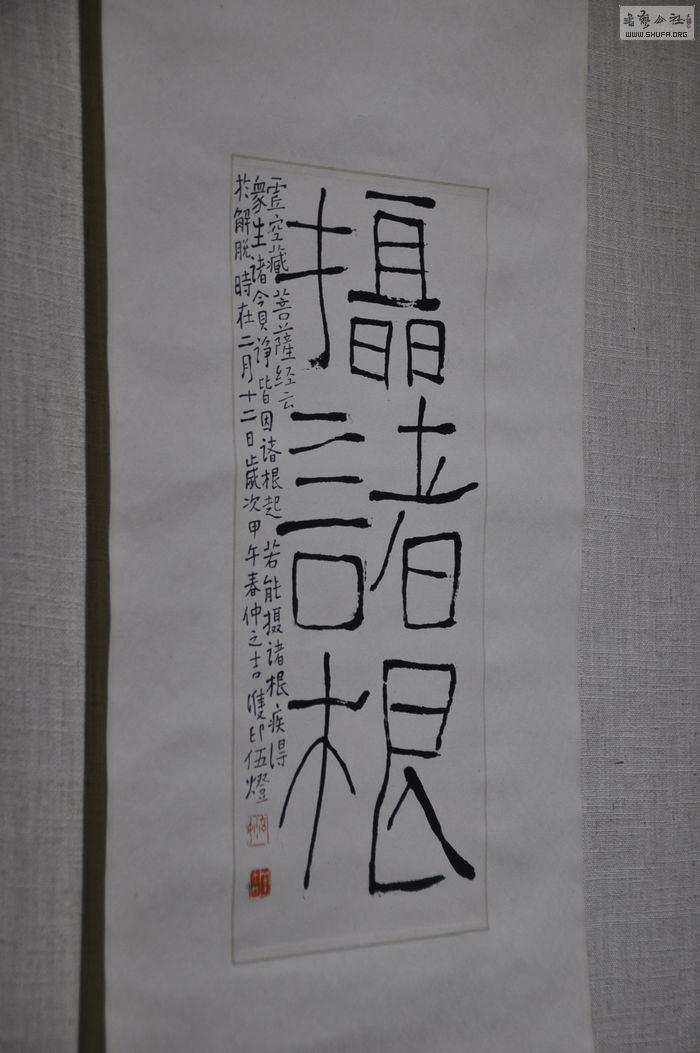 攝諸根
虛空藏菩薩经云
衆生诸貪诤皆因诸根起若能摄诸根疾得
扵解脱時在二月十二日歲次甲午春仲之吉雙印伍燈
書藝公社
WWW.SHUFA.ORG